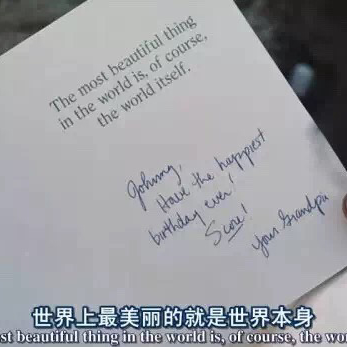 The most beautiful thing
in the world is, of course,
the world itself.
Johnny,
Have the happiest
birthday ever!
Score!
Your Grandpa
世界上最美丽的就是世界本身
st beautiful thing in the world is, of course, the wo